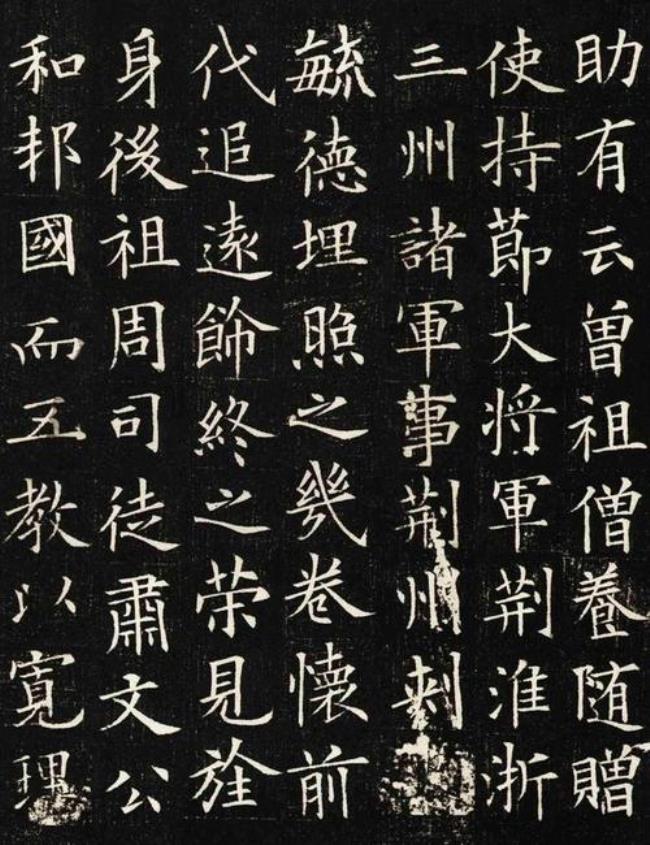 助有云曾祖僧養随贈
使持莭大将軍荆淮浙
三州諸軍事荆州刺
毓德埋照之幾卷懷前
代追逺飾終之荣見旌
身後祖周司徒肅文公
和邦國而五教以寛理